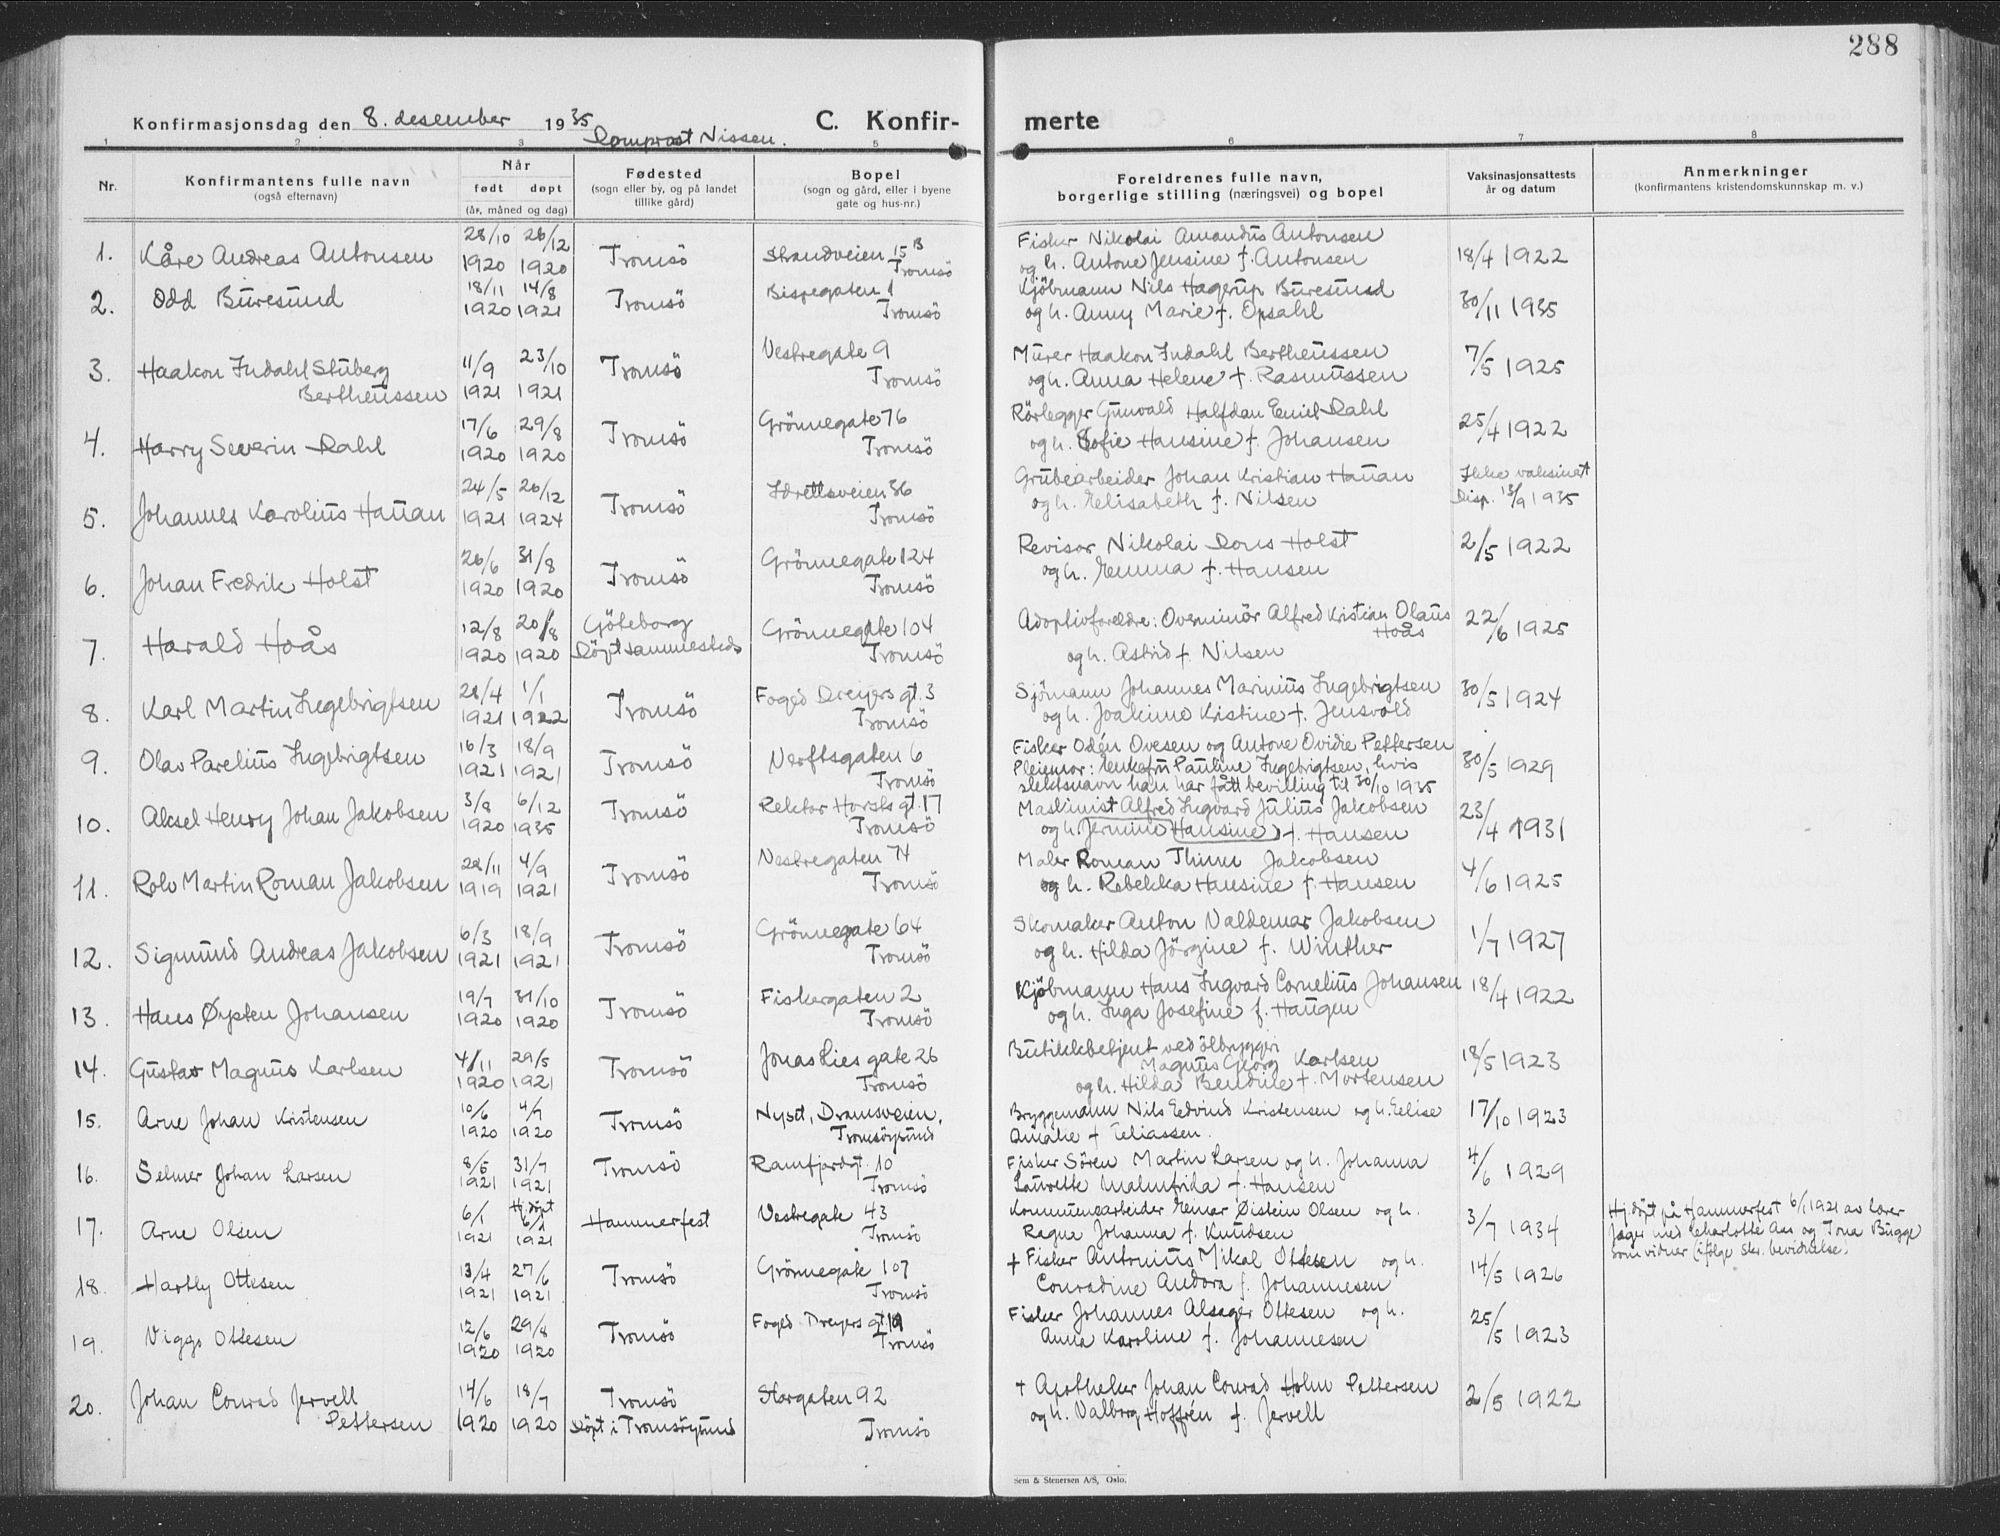 288
Konfirmasjonsdag den 8. desember 1935 C. Konfir- merte
Domprost Nissen.
1 2 3 5 6 7 8
Nr.
Konfirmantens fulle navn
(også efternavn)
Når
født døpt
(år, måned og dag)
Fødested
(sogn eller by, og på landet
tillike gård)
Bopel
(sogn og gård, eller i byene
gate og hus-nr.)
Foreldrenes fulle navn,
borgerlige stilling (næringsvei) og bopel
Vaksinasjonsattests
år og datum
Anmerkninger
(konfirmantens kristendomskunnskap m. v.)
1. Kåre Andreas Antonsen 28/10 1920 26/12 1920 Tromsö Strandveien 15B Tromsö
Fisker Nikolai Amandus Antonsen
og h. Antone Jensine f. Antonsen 18/4 1922
2. Odd Buresund 18/11 1920 14/8 1921 Tromsö Bispegaten 1 Tromsö
Kjöbmann Nils Hagerup Buresund
og h. Anny Marie f. Opsahl 30/11 1935
3. Haakon Indahl Stuberg
Bertheussen 11/9 1921 23/10 1921 Tromsö Vestregate 9 Tromsö
Murer Haakon Indahl Bertheussen
og h. Anna Helene f. Rasmussen 7/5 1925
4. Harry Severin Dahl 17/6 1920 29/8 1920 Tromsö Grönnegate 76 Tromsö
Rörlegger Gunvald Halfdan Emil Dahl
og h. Sofie Hansine f. Johansen 25/4 1922
5. Johannes Karolius Hauan 24/5 1921 20/12 1924 Tromsö Idrettsveien 36 Tromsö
Grubearbeider Johan Kristian Hauan
og h. Elisabeth f. Nilsen Ikke vaksinert
Disp. 13/9 1935
6. Johan Fredrik Holst 26/6 1920 31/8 1920 Tromsö Grönnegate 124 Tromsö
Revisor Nikolai Dons Holst
og h. Emma f. Hansen 2/5 1922
7. Harald Hoås 12/8 1920 20/8 1920 Göteborg
Döpt sammesteds Grönnegate 104 Tromsö
Adoptivforeldre: Overminör Alfred Kristian Olaus
Hoås
og h. Astrid f. Nilsen 22/6 1925
8. Karl Martin Ingebrigtsen 28/4 1921 1/1 1922 Tromsö Foged Dreyers gt. 3 Tromsö
Sjömann Johannes Marinius Ingebrigtsen
og h. Joakime Kristine f. Jensvold 30/5 1924
9. Olav Parelius Ingebrigtsen 16/3 1921 18/9 1921 Tromsö Verftsgaten 6 Tromsö
Fisker Odén Ovesen og Antone Ovidie Pettersen
Pleiemor: Enkefru Pauline Ingebrigtsen, hvis
slektsnavn han har fått bevilling til 30/10 1935 30/5 1929
10. Aksel Henry Johan Jakobsen 3/8 1920 6/12 1935 Tromsö Rektor Horsts gt. 17 Tromsö
Maskinist Alfred Ingvard Julius Jakobsen
og h. Jermine Hansine f. Hansen 23/4 1931
11. Rolv Martin Roman Jakobsen 22/11 1919 4/9 1921 Tromsö Vestregaten 74 Tromsö
Maler Roman Thinn Jakobsen
og h. Rebekka Hansine f. Hansen 4/6 1925
12. Sigmund Andreas Jakobsen 6/3 1921 18/9 1921 Tromsö Grönnegate 64 Tromsö
Skomaker Anton Valdemar Jakobsen
og h. Hilda Jörgine f. Winther 1/7 1927
13. Hans Øysten Johansen 19/7 1920 31/10 1920 Tromsö Fiskergaten 2 Tromsö
Kjöbmann Hans Ingvard Cornelius Johansen
og h. Inga Josefine f. Haugen 18/4 1922
14. Gustav Magnus Karlsen 4/11 1920 29/5 1921 Tromsö Jonas Lies gate 26 Tromsö
Butikkbetjent ved ölbryggeri
Magnus Georg Karlsen
og h. Hilda Bendine f. Mortensen 18/5 1923
15. Arne Johan Kristensen 10/6 1920 4/7 1920 Tromsö Nyset, Dramsveien, Tromsöysund
Bryggemann Nils Edvind Kristensen og h. Elise
Amalie f. Eliassen. 17/10 1923
16. Selmer Johan Larsen 8/5 1921 31/7 1921 Tromsö Ramfjordgt. 10 Tromsö
Fisker Sören Martin Larsen og h. Johanna
Laurette Malmfrida f. Hansen 4/6 1929
17. Arne Olsen 6/1 1921 Hj.döpt 6/1 1921 Hammerfest Vestregate 43 Tromsö
Kommunearbeider Einar Øistein Olsen og h.
Ragna Johanna f. Knudsen 3/7 1934
Hj.döpt på Hammerfest 6/1 1921 av lærer
Jager med Charlotte Aas og Tona Bugge
som vidner (ifölge skr. bevidnelse)
18. Hartly Ottesen 13/4 1921 27/6 1921 Tromsö Grönnegate 107 Tromsö
+ Fisker Antonius Mikal Ottesen og h.
Conradine Andora f. Johannesen 14/5 1926
19. Viggo Ottesen 12/6 1920 29/8 1920 Tromsö Foged Dreyers gt. 19 Tromsö
Fisker Johannes Alsager Ottesen og h.
Anna Karoline f. Johannesen 25/5 1923
20. Johan Conrad Jervell
Pettersen 14/6 1920 18/7 1920 Tromsö
Döpt i Tromsöysund Storgaten 92 Tromsö
+ Apotheker Johan Conrad Holm Pettersen
og h. Valborg Hoffrén f. Jervell 2/5 1922
Sem & Stenersen A/S, Oslo.